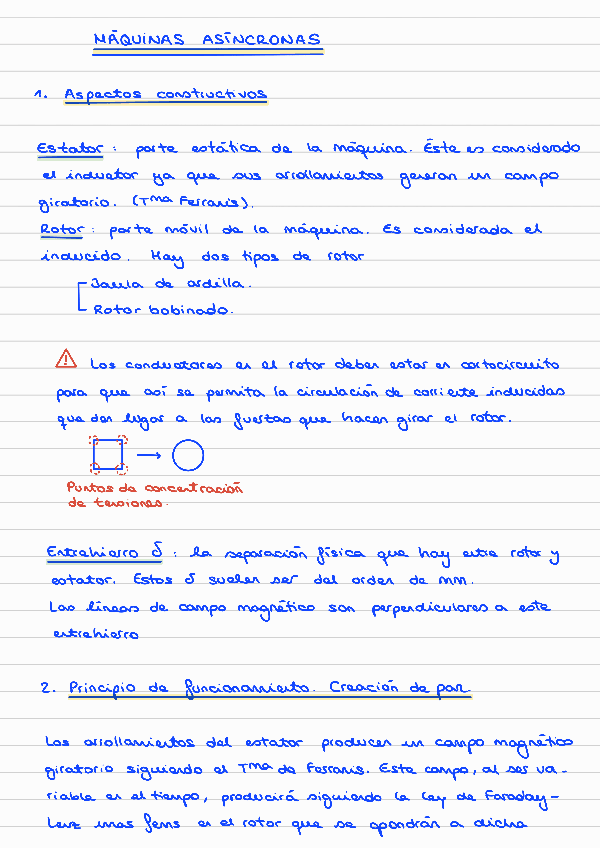 MÁQUINAS ASÍNCRONAS
1. Aspectos constructivos
Estator: parte estática de la máquina. Éste es considerado
el inductor ya que sus arrollamientos generan un campo
giratorio. (Tma Ferraris).
Rotor: parte móvil de la máquina. Es considerada el
inducido. Hay dos tipos de rotor
Jaula de ardilla.
Rotor bobinado.
Los conductores en el rotor deben estar en cortocircuito
para que así se permita la circulación de corriente inducidas
que den lugar a las fuerzas que hacen girar el rotor.
Puntos de concentración
de tensiones.
Entrehierro δ: la separación física que hay entre rotor y
estator. Estos δ suelen ser del orden de mm.
Las líneas de campo magnético son perpendiculares a este
entrehierro
2. Principio de funcionamiento. Creación de par.
Los arrollamientos del estator producen un campo magnético
giratorio siguiendo el Tma de Ferraris. Este campo, al ser va-
riable en el tiempo, producirá siguiendo la ley de Faraday-
Lenz unas fems en el rotor que se opondrán a dicha